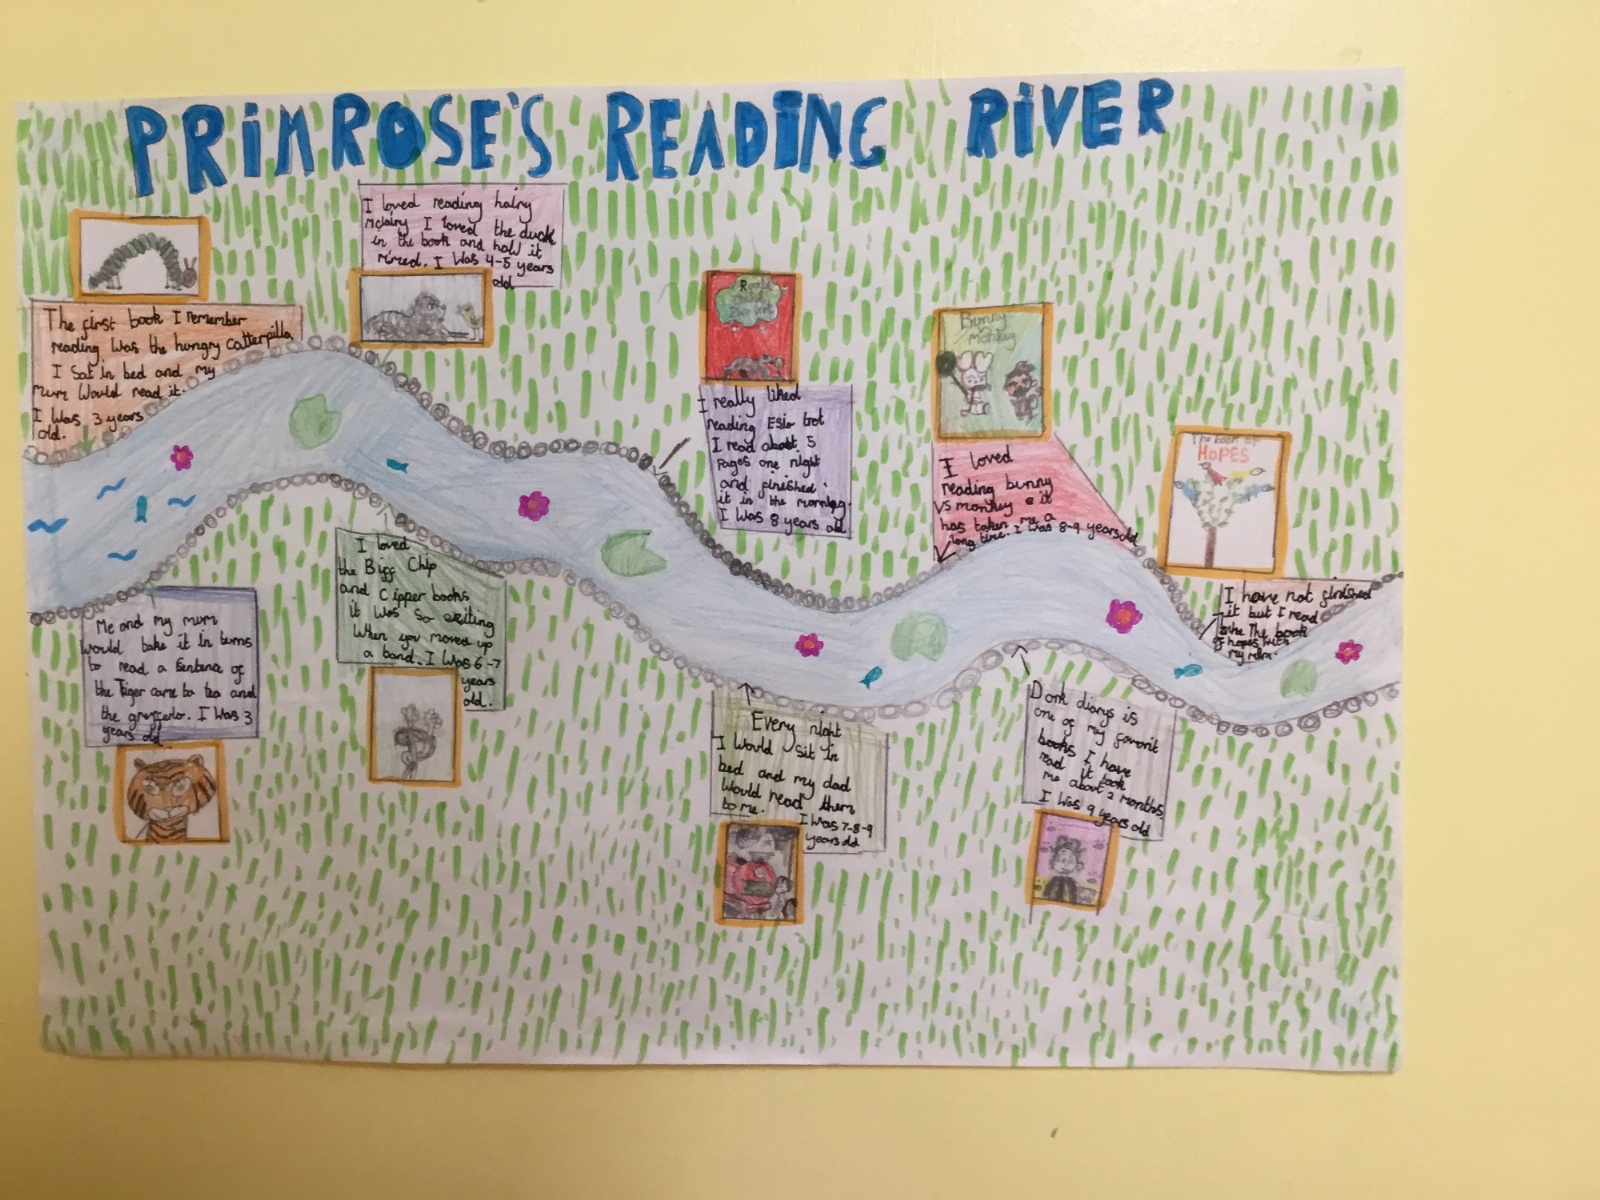 PRIMROSE'S READING RIVER
The first book I remember
reading Was the hungry catterpilla
I Sat in bed and my
Mum Would read it.
I Was 3 years
old.
I loved reading hairy
Mclairy I loved the duck
in the book and how it
rimed. I Was 4-5 years
old
Roald
Dahl
Esio trot
I really liked
reading Esio trot
I read about 5
Pages one night
and finished
it in the morning.
I Was 8 years old
Bunny
vs
Monkey
I loved
reading bunny
VS monkey & it
has taken me a
long time. I Was 8-9 years old
The book OF
HOPES
I have not finished
it but I read
the The book
of hopes with
my mum.
Me and my mum
Would take it in turns
to read a Sentence of
the Tiger came to tea and
the I Was 3
years old
I loved
the Biff Chip
and Cipper books
it Was So exiting
When you moved up
a band. I Was 6-7
years
old.
Every night
I Would Sit in
bed and my dad
Would read them
to me.
I Was 7-8-9
years old
Dork diarys is
one of my favorit
books I have
read it took
me about 2 months.
I Was 9 years old